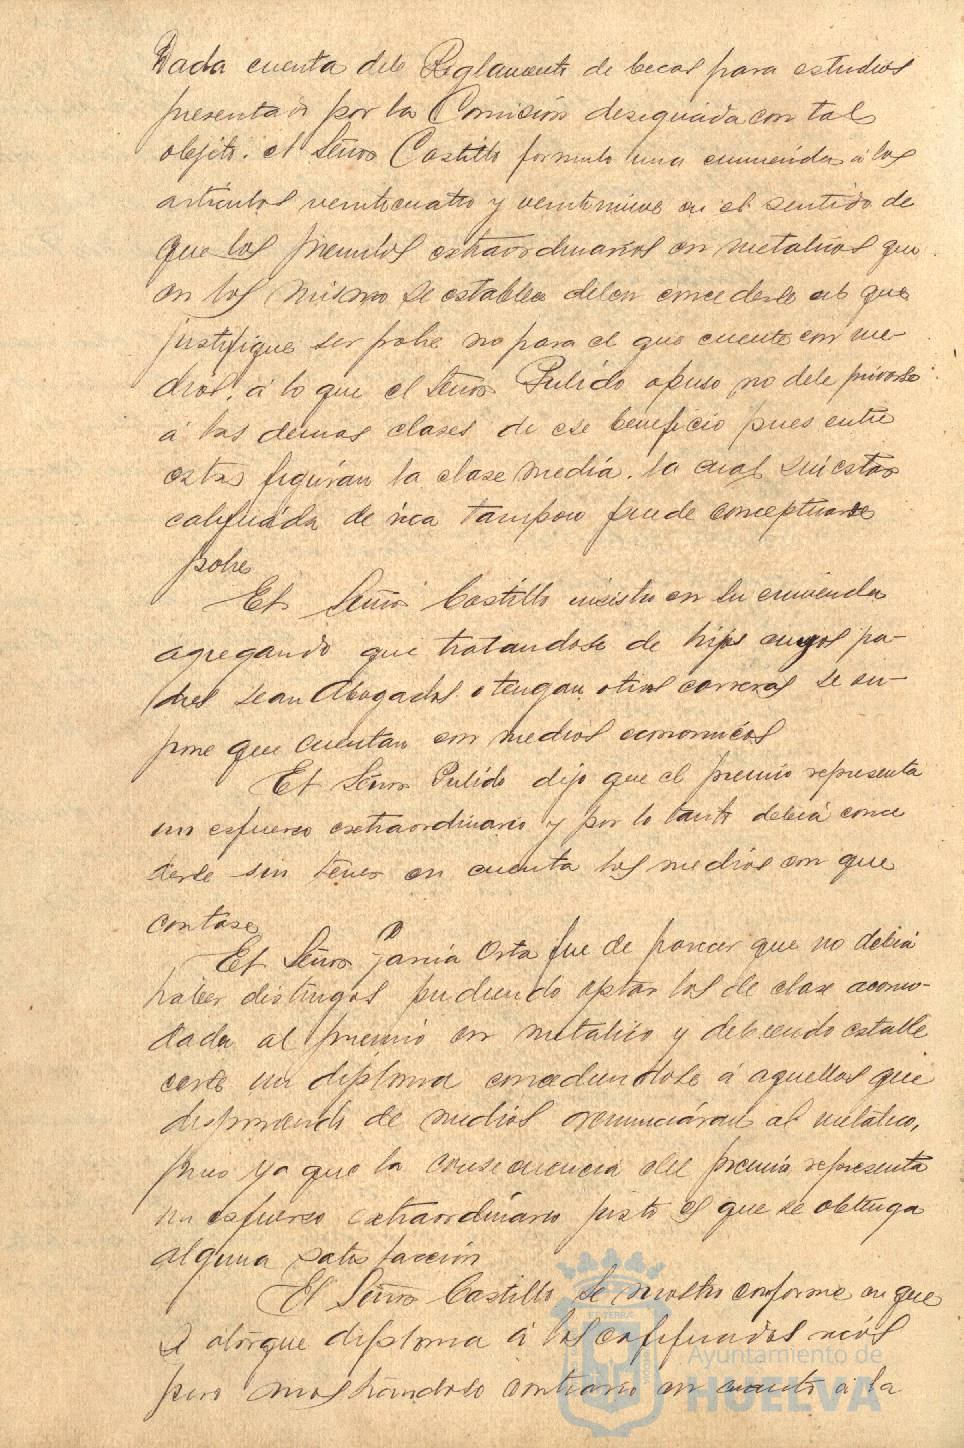 Dada cuenta del Reglamento de becas para estudios
presentado por la Comisión designada con tal
objeto. el Señor Castillo formulo una enmienda á los
artículos veinticuatro y veintinueve en el sentido de
que los premios extraordinarios en metalico que
en los mismo se establece deben concederse al que
justifique ser pobre no para el que cuente con me-
dios, á lo que el Señor Pulido opuso no debe privarse
á las demas clases de ese beneficio pues entre
estas figuran la clase media. la cual sin estar
calificada de rica tampoco puede conceptuarse
pobre
El Señor Castillo insiste en su enmienda
agregando que tratandose de hijos cuyos pa-
dres sean Abogados o tengan otras carreras se su-
pone que cuentan con medios economicos
El Señor Pulido dijo que el premio representa
un esfuerzo extraordinario y por lo tanto debia conce
derse sin tener en cuenta los medios con que
contase
El Señor Garcia Orta fue de parecer que no debia
haber distingos pudiendo optar los de clase acomo-
dada al premio en metalico y debiendo estable
cerse un diploma concediendose á aquellos que
disponiendo de medios renunciáran al metalico,
pues ya que la consecuencia del premio representa
un esfuerzo extraordinario justo es que se obtenga
alguna satisfacción
El Señor Castillo se mostro conforme en que
se otorgue diploma á los calificados ricos
pero mostrandose contrario en cuanto á la
Ayuntamiento de
HUELVA